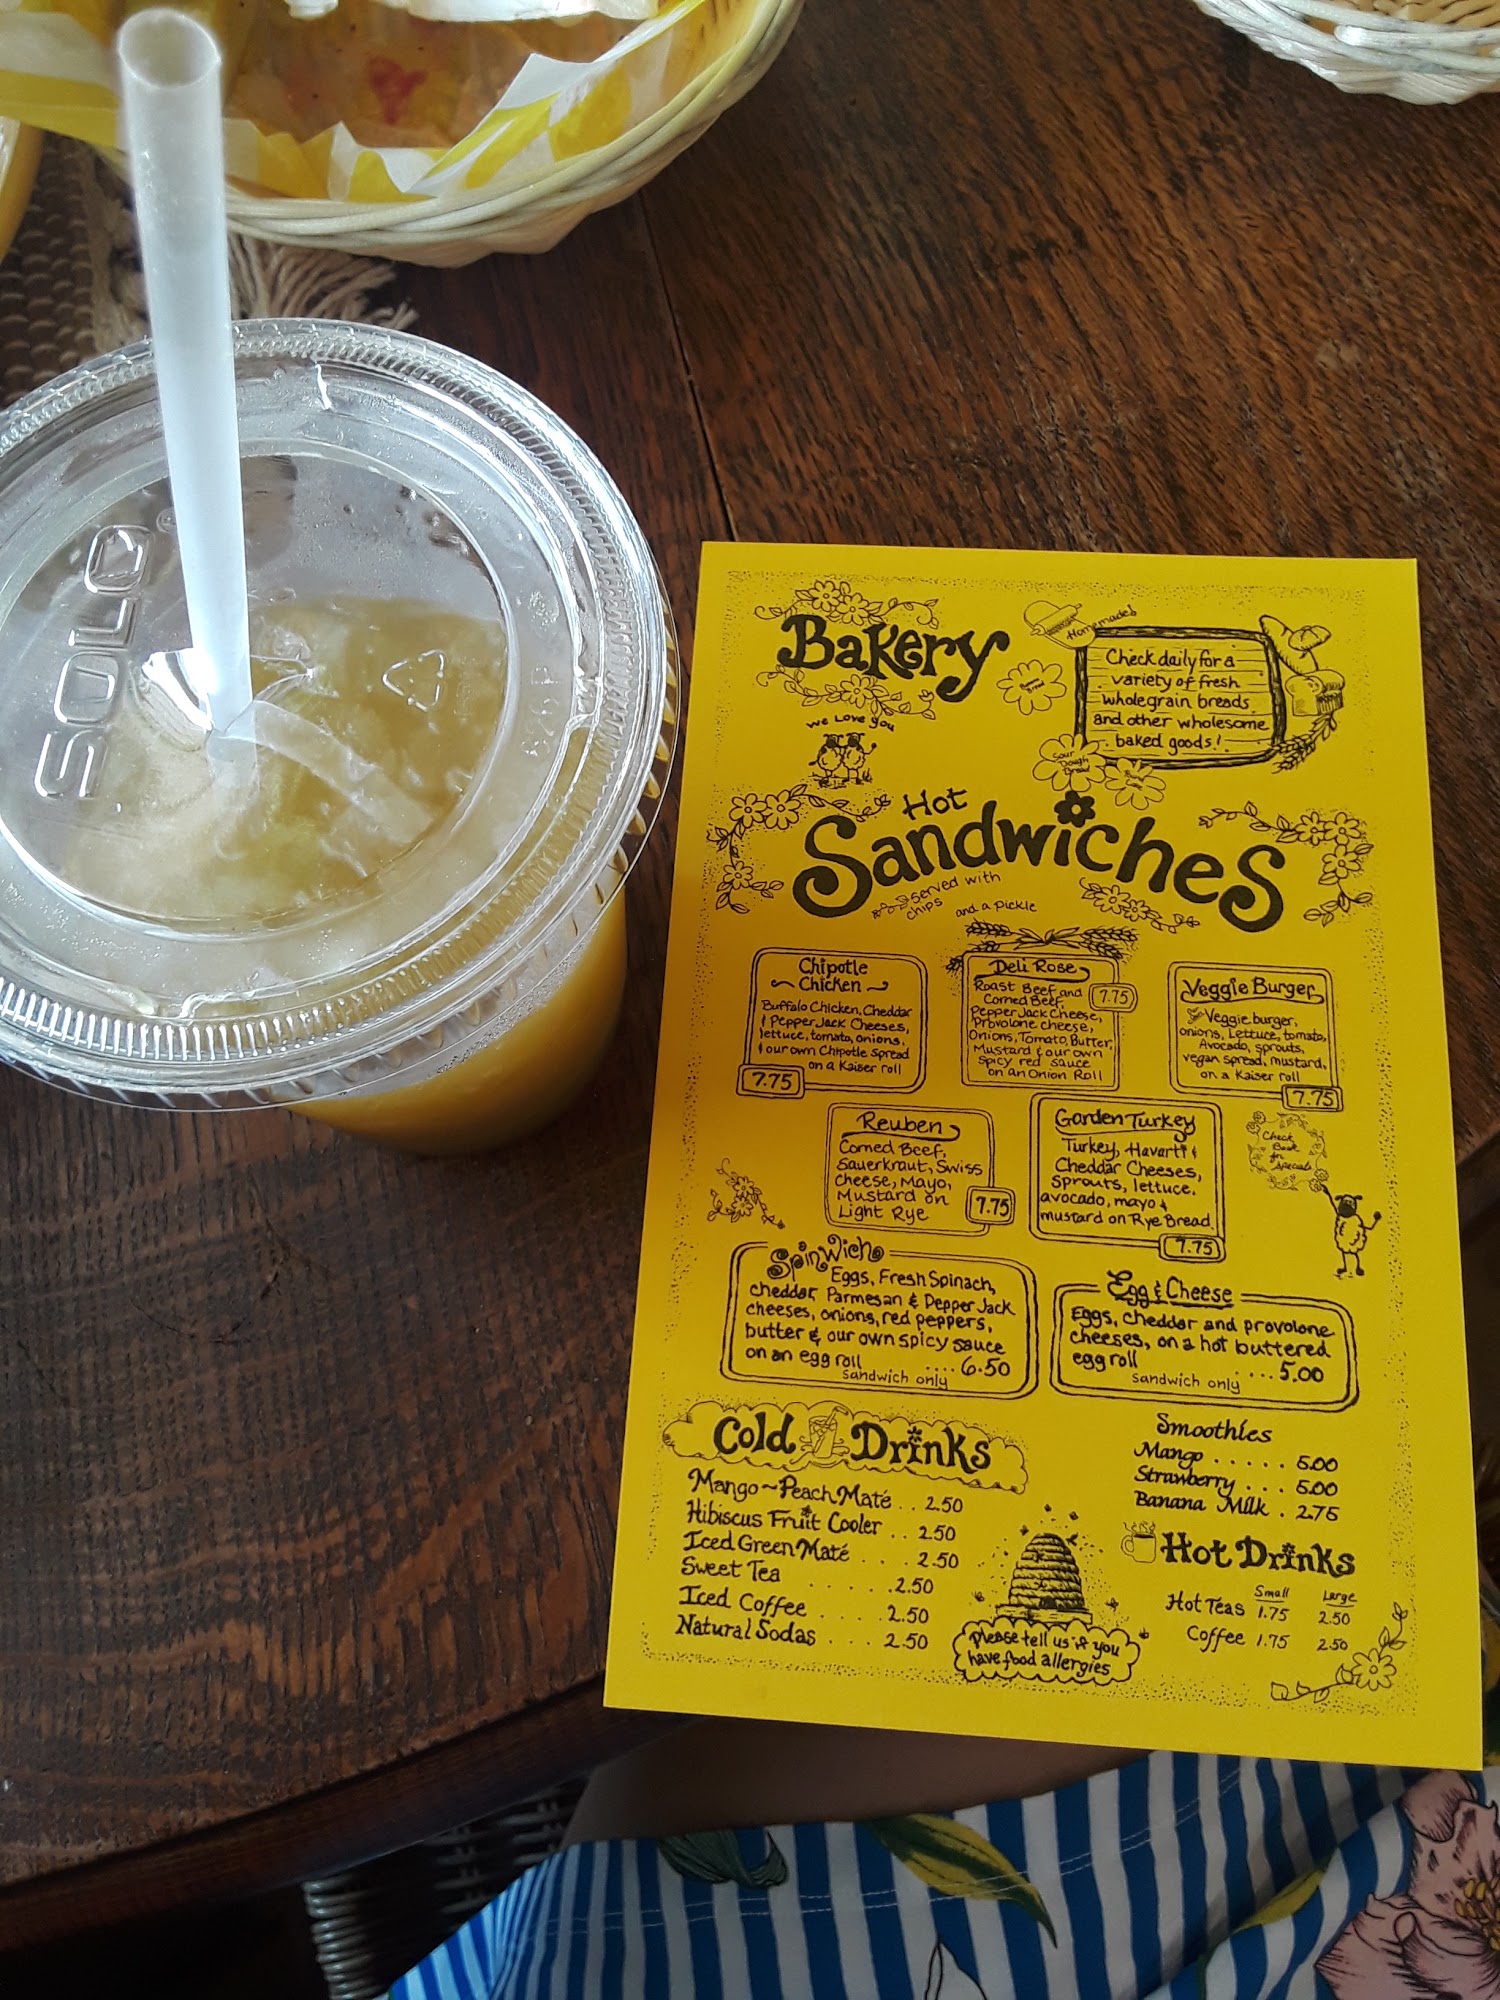 SOLO
Bakery
we Love you
Homemade!
Check daily for a
variety of fresh
whole grain breads
and other wholesome
baked goods!
Sour
Dough
Bread
Hot
Sandwiches
served with
chips
and a pickle
Chipotle
Chicken
Buffalo Chicken, Cheddar
& Pepper Jack Cheeses,
lettuce, tomato, onions,
& our own Chipotle spread
on a Kaiser roll
7.75
Deli Rose
Roast Beef and
Corned Beef,
Pepper Jack Cheese,
Provolone cheese,
Onions, Tomato, Butter,
Mustard & our own
spicy red sauce
on an Onion Roll
7.75
Veggie Burger
Veggie burger,
onions, Lettuce, tomato,
Avocado, sprouts,
vegan spread, mustard,
on a Kaiser roll
7.75
Reuben
Corned Beef,
Sauerkraut, Swiss
cheese, Mayo,
Mustard on
Light Rye
7.75
Garden Turkey
Turkey, Havarti &
Cheddar Cheeses,
sprouts, lettuce,
avocado, mayo &
mustard on Rye Bread.
7.75
Check
Back
for
Specials
Spinwich
Eggs, Fresh Spinach,
cheddar, Parmesan & Pepper Jack
cheeses, onions, red peppers,
butter & our own spicy sauce
on an egg roll .... 6.50
Sandwich only
Egg & Cheese
Eggs, cheddar and provolone
cheeses, on a hot buttered
egg roll .... 5.00
Sandwich only
Cold Drinks
Mango~Peach Maté . . 2.50
Hibiscus Fruit Cooler . . 2.50
Iced Green Maté . . . 2.50
Sweet Tea . . . . . . 2.50
Iced Coffee . . . . 2.50
Natural Sodas . . . 2.50
Please tell us if you
have food allergies
Smoothies
Mango . . . . . 5.00
Strawberry . . . 5.00
Banana Milk . 2.75
Hot Drinks
Small Large
Hot Teas 1.75 2.50
Coffee 1.75 2.50